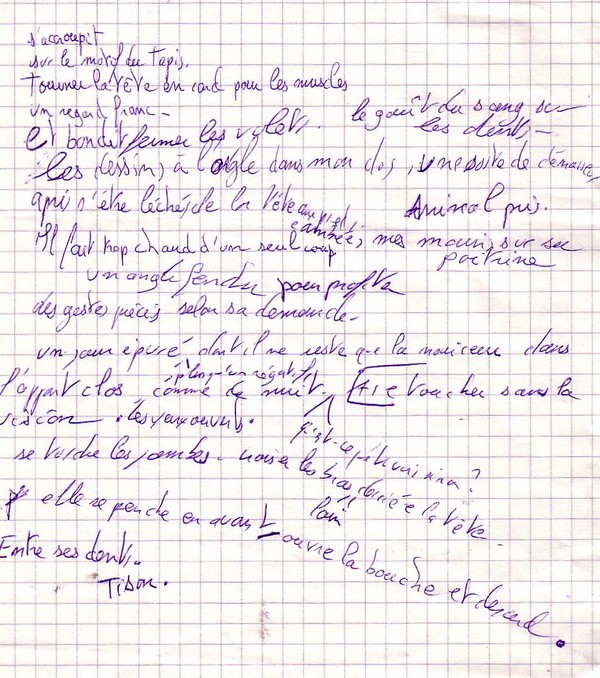 s'accroupit
sur le motif du Tapis.
Tourner la tête en rond pour les muscles
un regard franc -
le goût du sang sur
les dents -
et bondit fermer les volets.
les dessins à l'ongle dans mon dos, une sorte de démangeai
après s'être léchés de la tête aux pieds
Animal pris.
cambrée, mes mains sur sa
poitrine
Il fait trop chaud d'un seul coup
un angle fendu pour profiter
des gestes précis selon sa demande -
un jour épuré dont il ne reste que la noirceur dans
l'appart clos, comme de nuit.
plongé un négatif
se toucher sans la
vision. les yeux ouverts.
qu'est-ce
sinon ?
se torche les jambes -
les bras derrière la tête.
loin
elle se penche en avant
ouvre la bouche et descend.
Entre ses dents.
Tison.